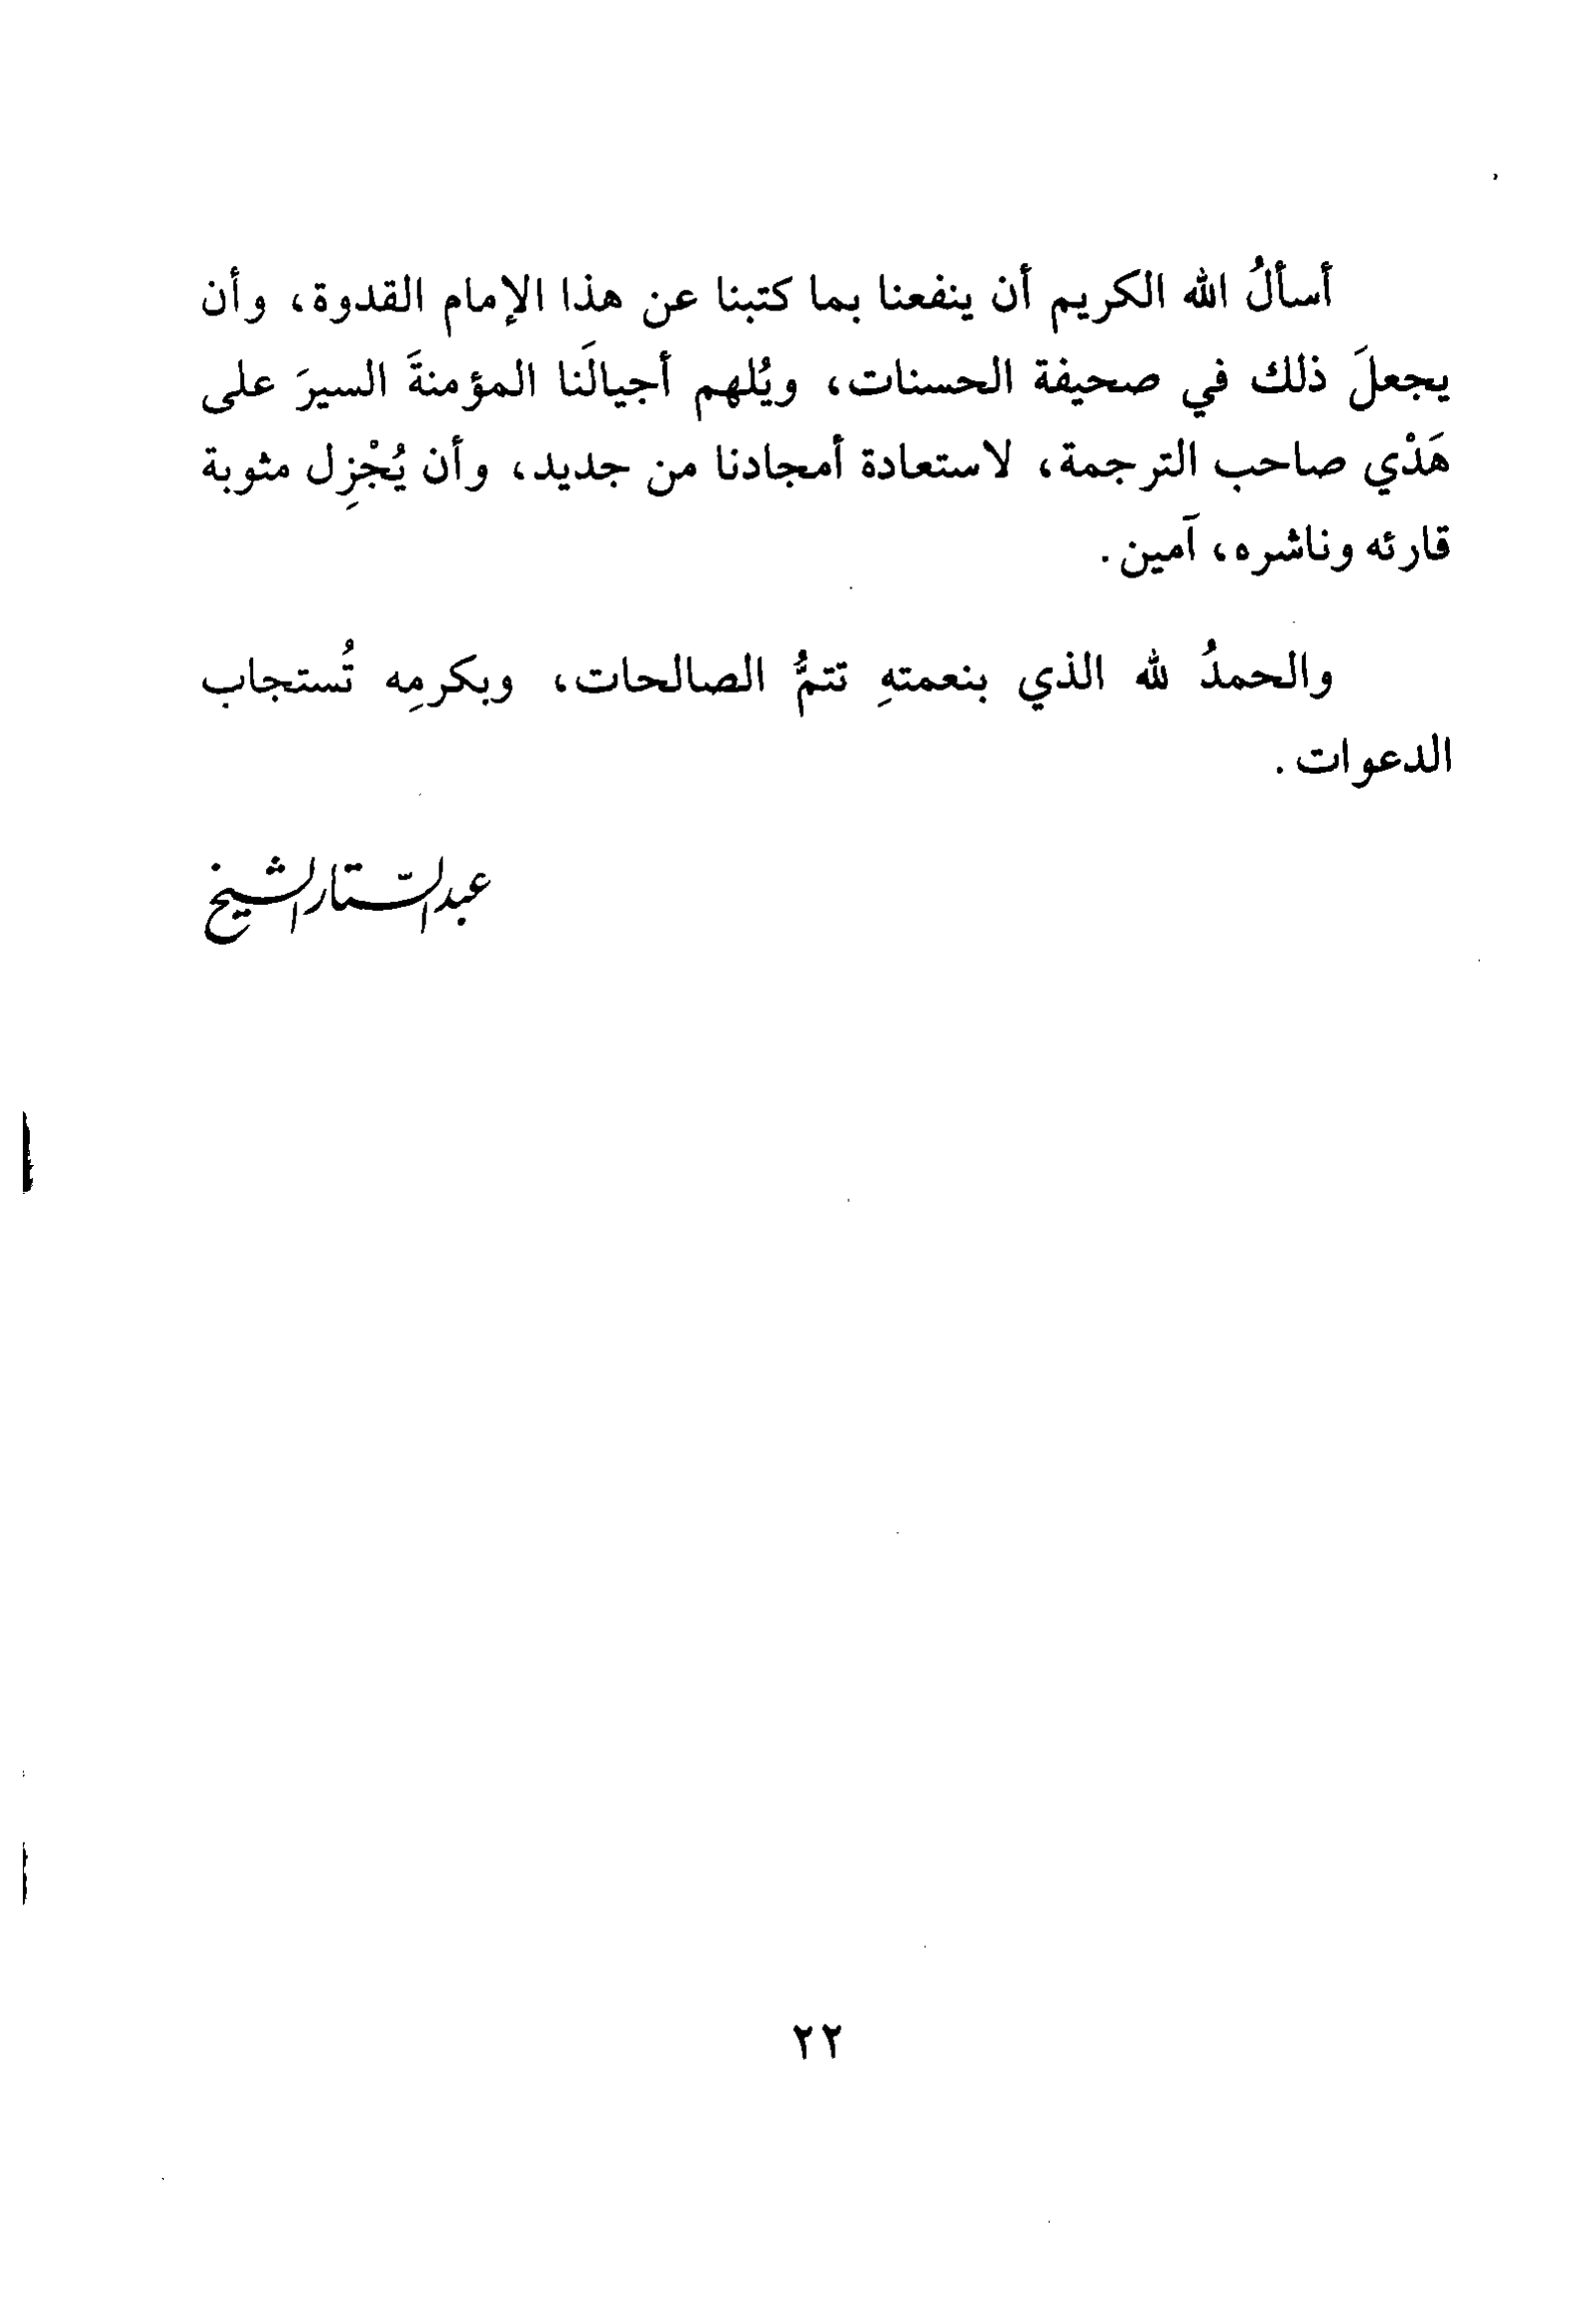 أسألُ الله الكريم أن ينفعنا بما كتبنا عن هذا الإمام القدوة، وأن
يجعلَ ذلك في صحيفة الحسنات، ويُلهم أجيالَنا المؤمنةَ السيرَ على
هَدْي صاحب الترجمة، لاستعادة أمجادنا من جديد، وأن يُجْزِل مثوبة
قارئه وناشره، آمين.
والحمدُ لله الذي بنعمتهِ تتمُّ الصالحات، وبكرمِه تُستجاب
الدعوات.
عبد الستّار الشيخ
٢٢